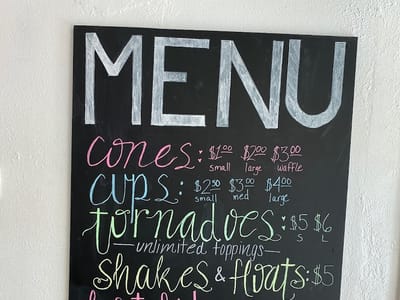 MENU
cones: $1.00 $2.00 $3.00
small large waffle
cups: $2.50 $3.00 $4.00
small med large
tornadoes: $5 $6
S L
—unlimited toppings—
shakes & floats: $5